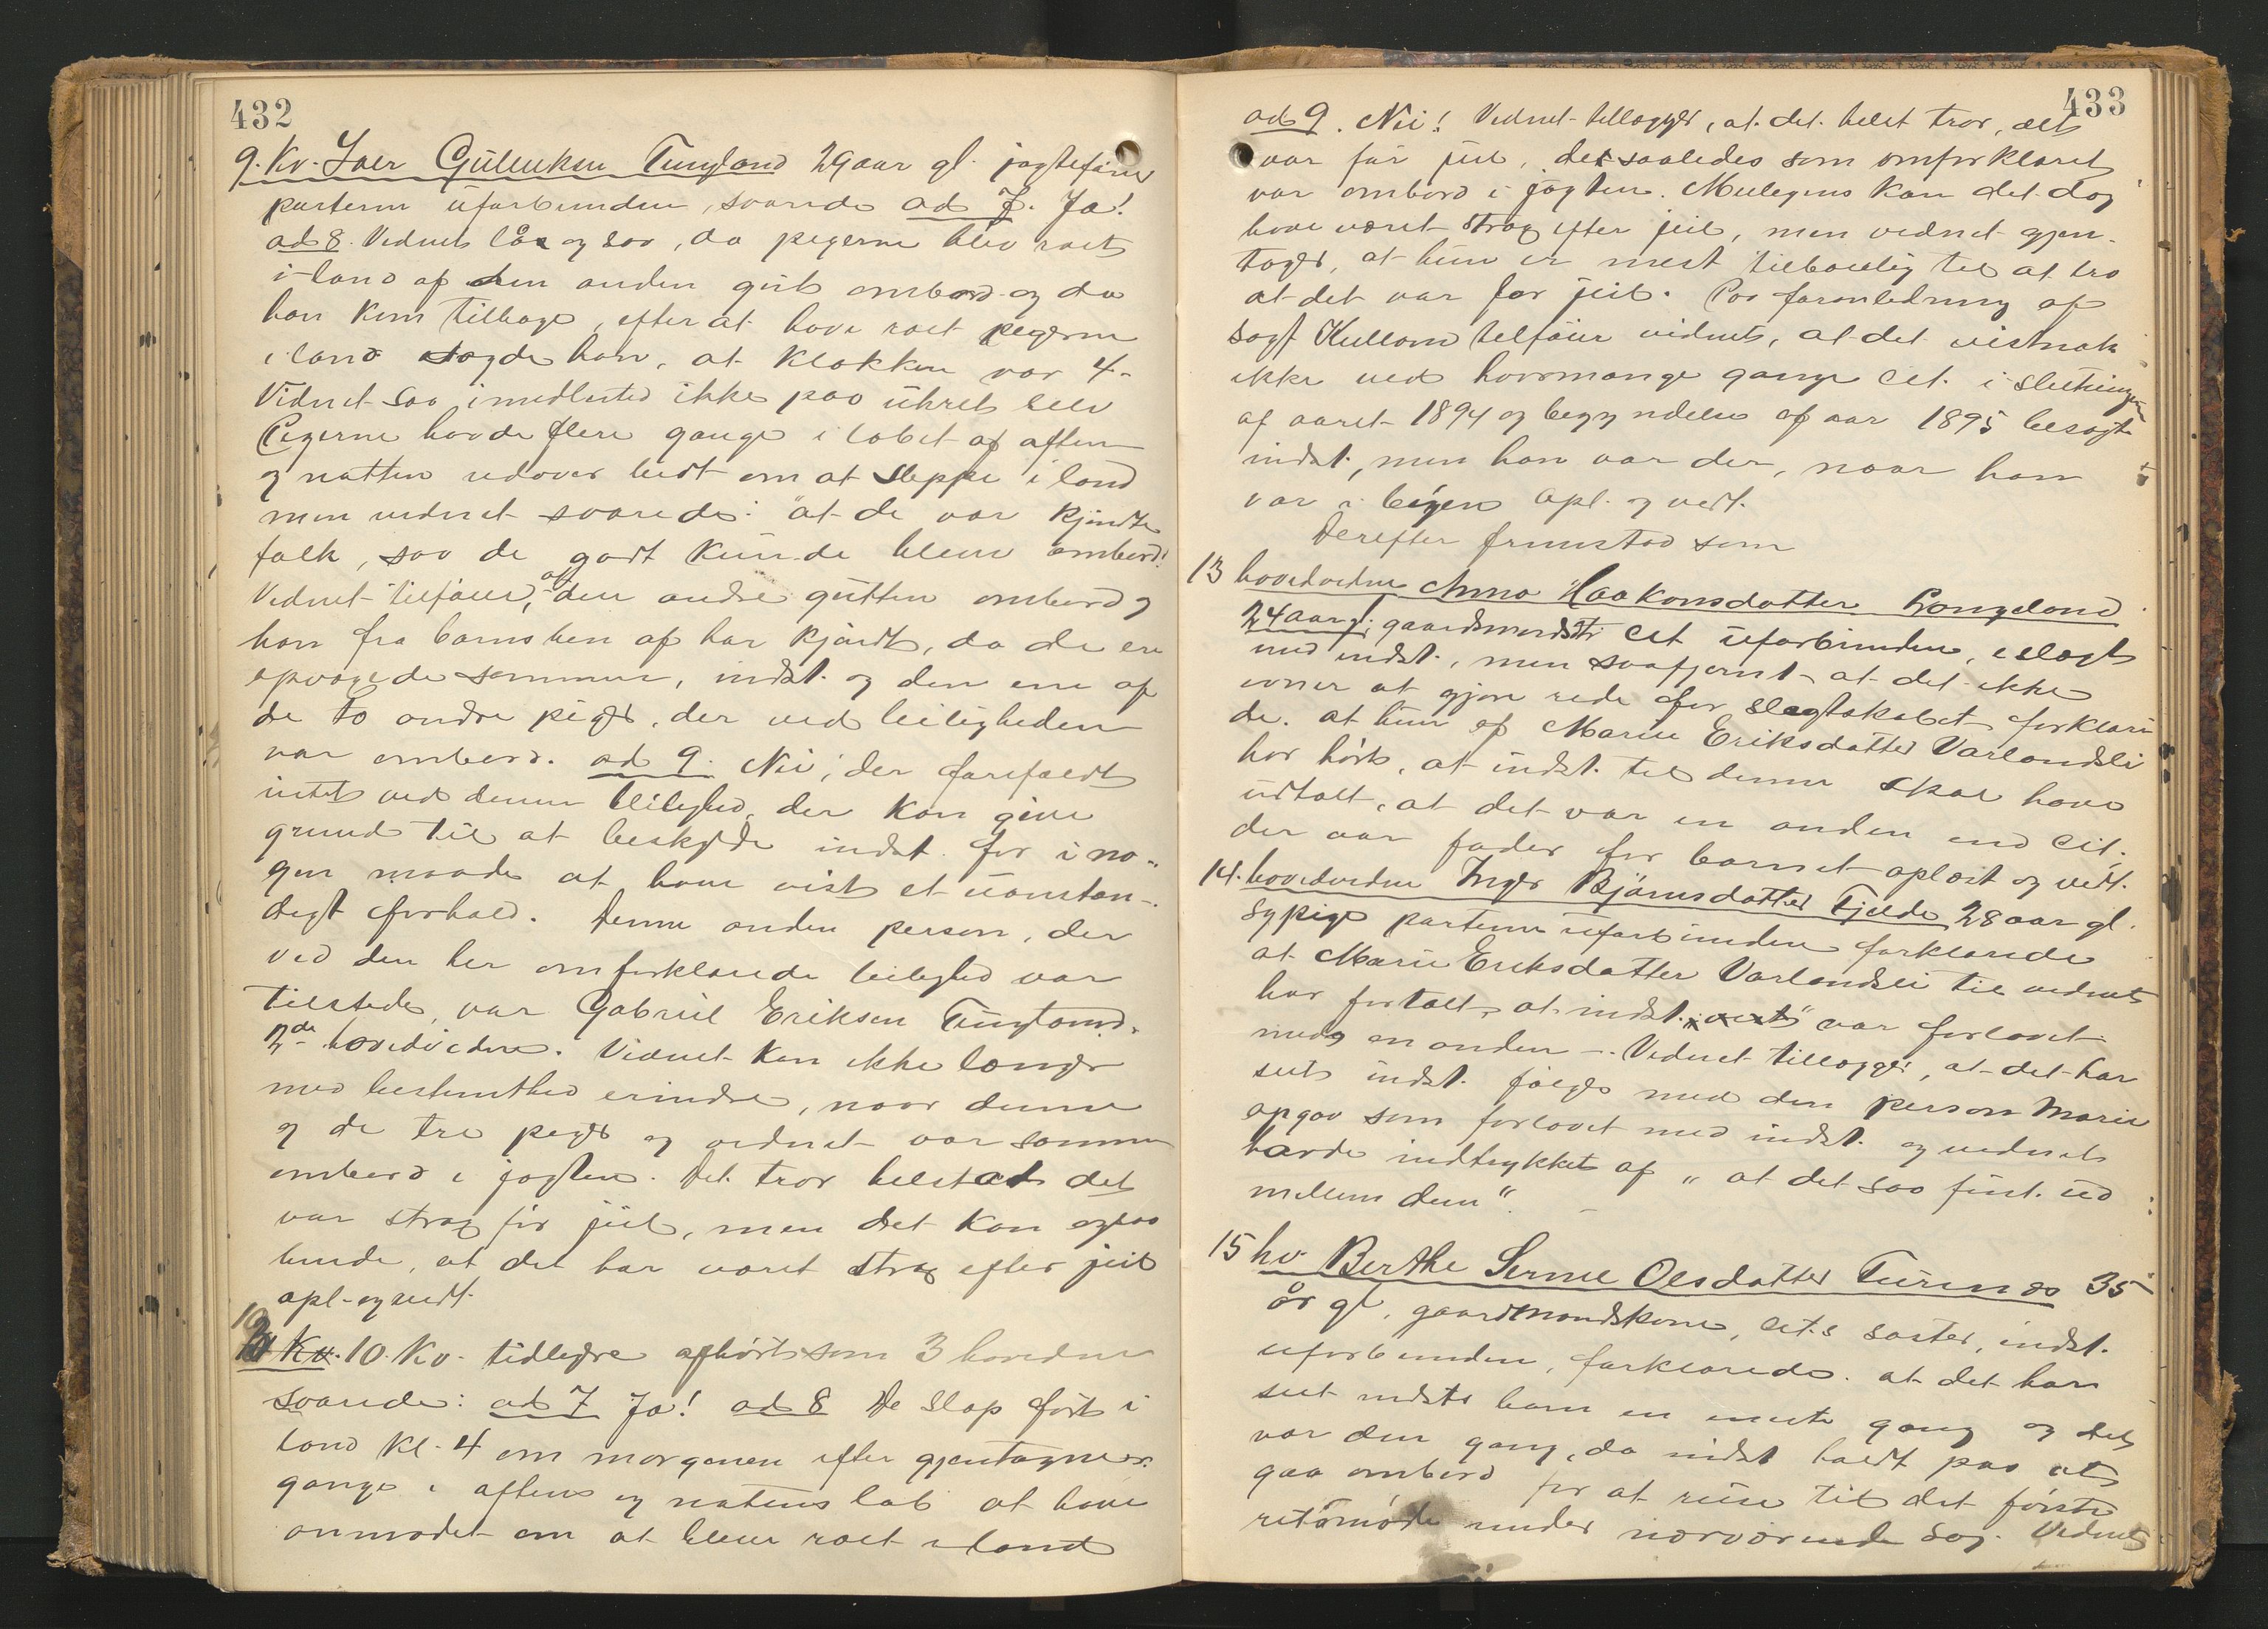 432
9. Kv. Loer Gulleuksen Tungland 29 aar gl. jagtefører
parterne uforbunden, svarede ad 7. Ja!
ad 8. Vidnet låa og sov, da pigerne blev roet
iland af den anden gut ombord og da
han kom tilbage, efter at have roet pigerne
iland sagde han, at klokken var 4.
Vidnet saa imidlertid ikke paa uhret selv
Pigerne havde flere gange i løbet af aften
og natten udover budt om at sleppe i land
men vidnet svarede: "at de var kjendte
folk, saa de godt kunde bleve ombord!
Vidnet tilføier, at den andre gutten ombord og
han fra barnsben af har kjendt, da de ere
opvogede sammen, indst. og den ene af
de to andre piger, der ved leiligheden
var ombord. ad 9. Nei, der forefaldt
intet ved denne leilighed, der kan give
grund til at beskylde indst. for i no-
gen maade at have vist et uanstæn-
digt forhold. Denne anden person, der
ved den her omforklarede leilighed var
tilstede, var Gabriel Eriksen Tungland.
2de hovedvidne. Vidnet kan ikke længer
med bestemthed erindre, naar denne
og de tre piger og vidnet var sammen
ombord i jagten. Det tror helst at det
var strax før jul, men det kan ogsaa
hende, at det har været strax efter jul
opl. og vedt.
10 Kv. 10. Kv. tidligere afhørt som 3 hovedvidne
svarede: ad 7 Ja! ad 8 De slap først i
land Kl. 4 om morgenen efter gjentagne
gange i aftens og nattens løb at have
anmodet om at bleve roet iland
433
ad 9. Nei! Vidnet tillægger, at det helst tror, det
var før jul, det saaledes som omforklaret
var ombord i jagten. Muligens kan det dog
have været strax efter jul, men vidnet gjen-
tager, at hun er mest tilbøielig til at tro
at det var før jul. Paa foranledning af
sagf. Kulland tilføier vidnet, at det vistnok
ikke ved hvormange gange cit. i slutningen
af aaret 1894 og begyndelse af aar 1895 besøgte
indst., men han var der, naar han
var i beigen Opl. og vedt.
Derefter fremstod som
13 hovedvidne Anna Haakonsdatter Langeland
24 aar gl. gaardmandsdtr. cit uforbunden, i slægt
med indst., men saa fjernt at det ikke
evner at gjøre rede for slægtskabet forklare-
de. at hun af Marie Eriksdatter Varlandsli
har hørt, at indst. til denne skal have
udtalt, at det var en anden end cit.
der var fader for barnet oplæst og vedt.
14. hovedvidne Inger Bjørnsdatter Fjelde 28 aar gl.
sypige parterne uforbunden forklarede
at Marie Eriksdatter Varlandsli til vidnet
har fortalt, at indst. var forlovet
med en anden -. Vidnet tillægger, at det har
seet indst. følges med den person Marie
opgav som forlovet med indst. og vidnet
havde indtrykket af "at det saa fint. ud
mellem dem".
15 hv. Berthe Serine Olsdatter Turenæs 35
år gl. gaardmandskone, cit.s søster, indst.
uforbunden, forklarede at det har
seet indsts barn en eneste gang og det
var den gang, da indst holdt paa at
gaa ombord for at reise til det første
retsmøde under nærværende sag. Vidnet